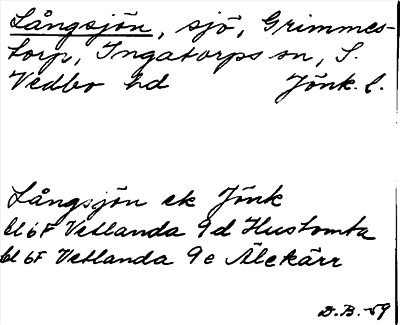 Långsjön, sjö, Grimmes-
torp, Ingatorps sn, S.
Vedbo hd Jönk. l.
Långsjön ek Jönk
bl 6F Vetlanda 9d Hustomta
bl 6F Vetlanda 9e Älekärr
D.B. -59